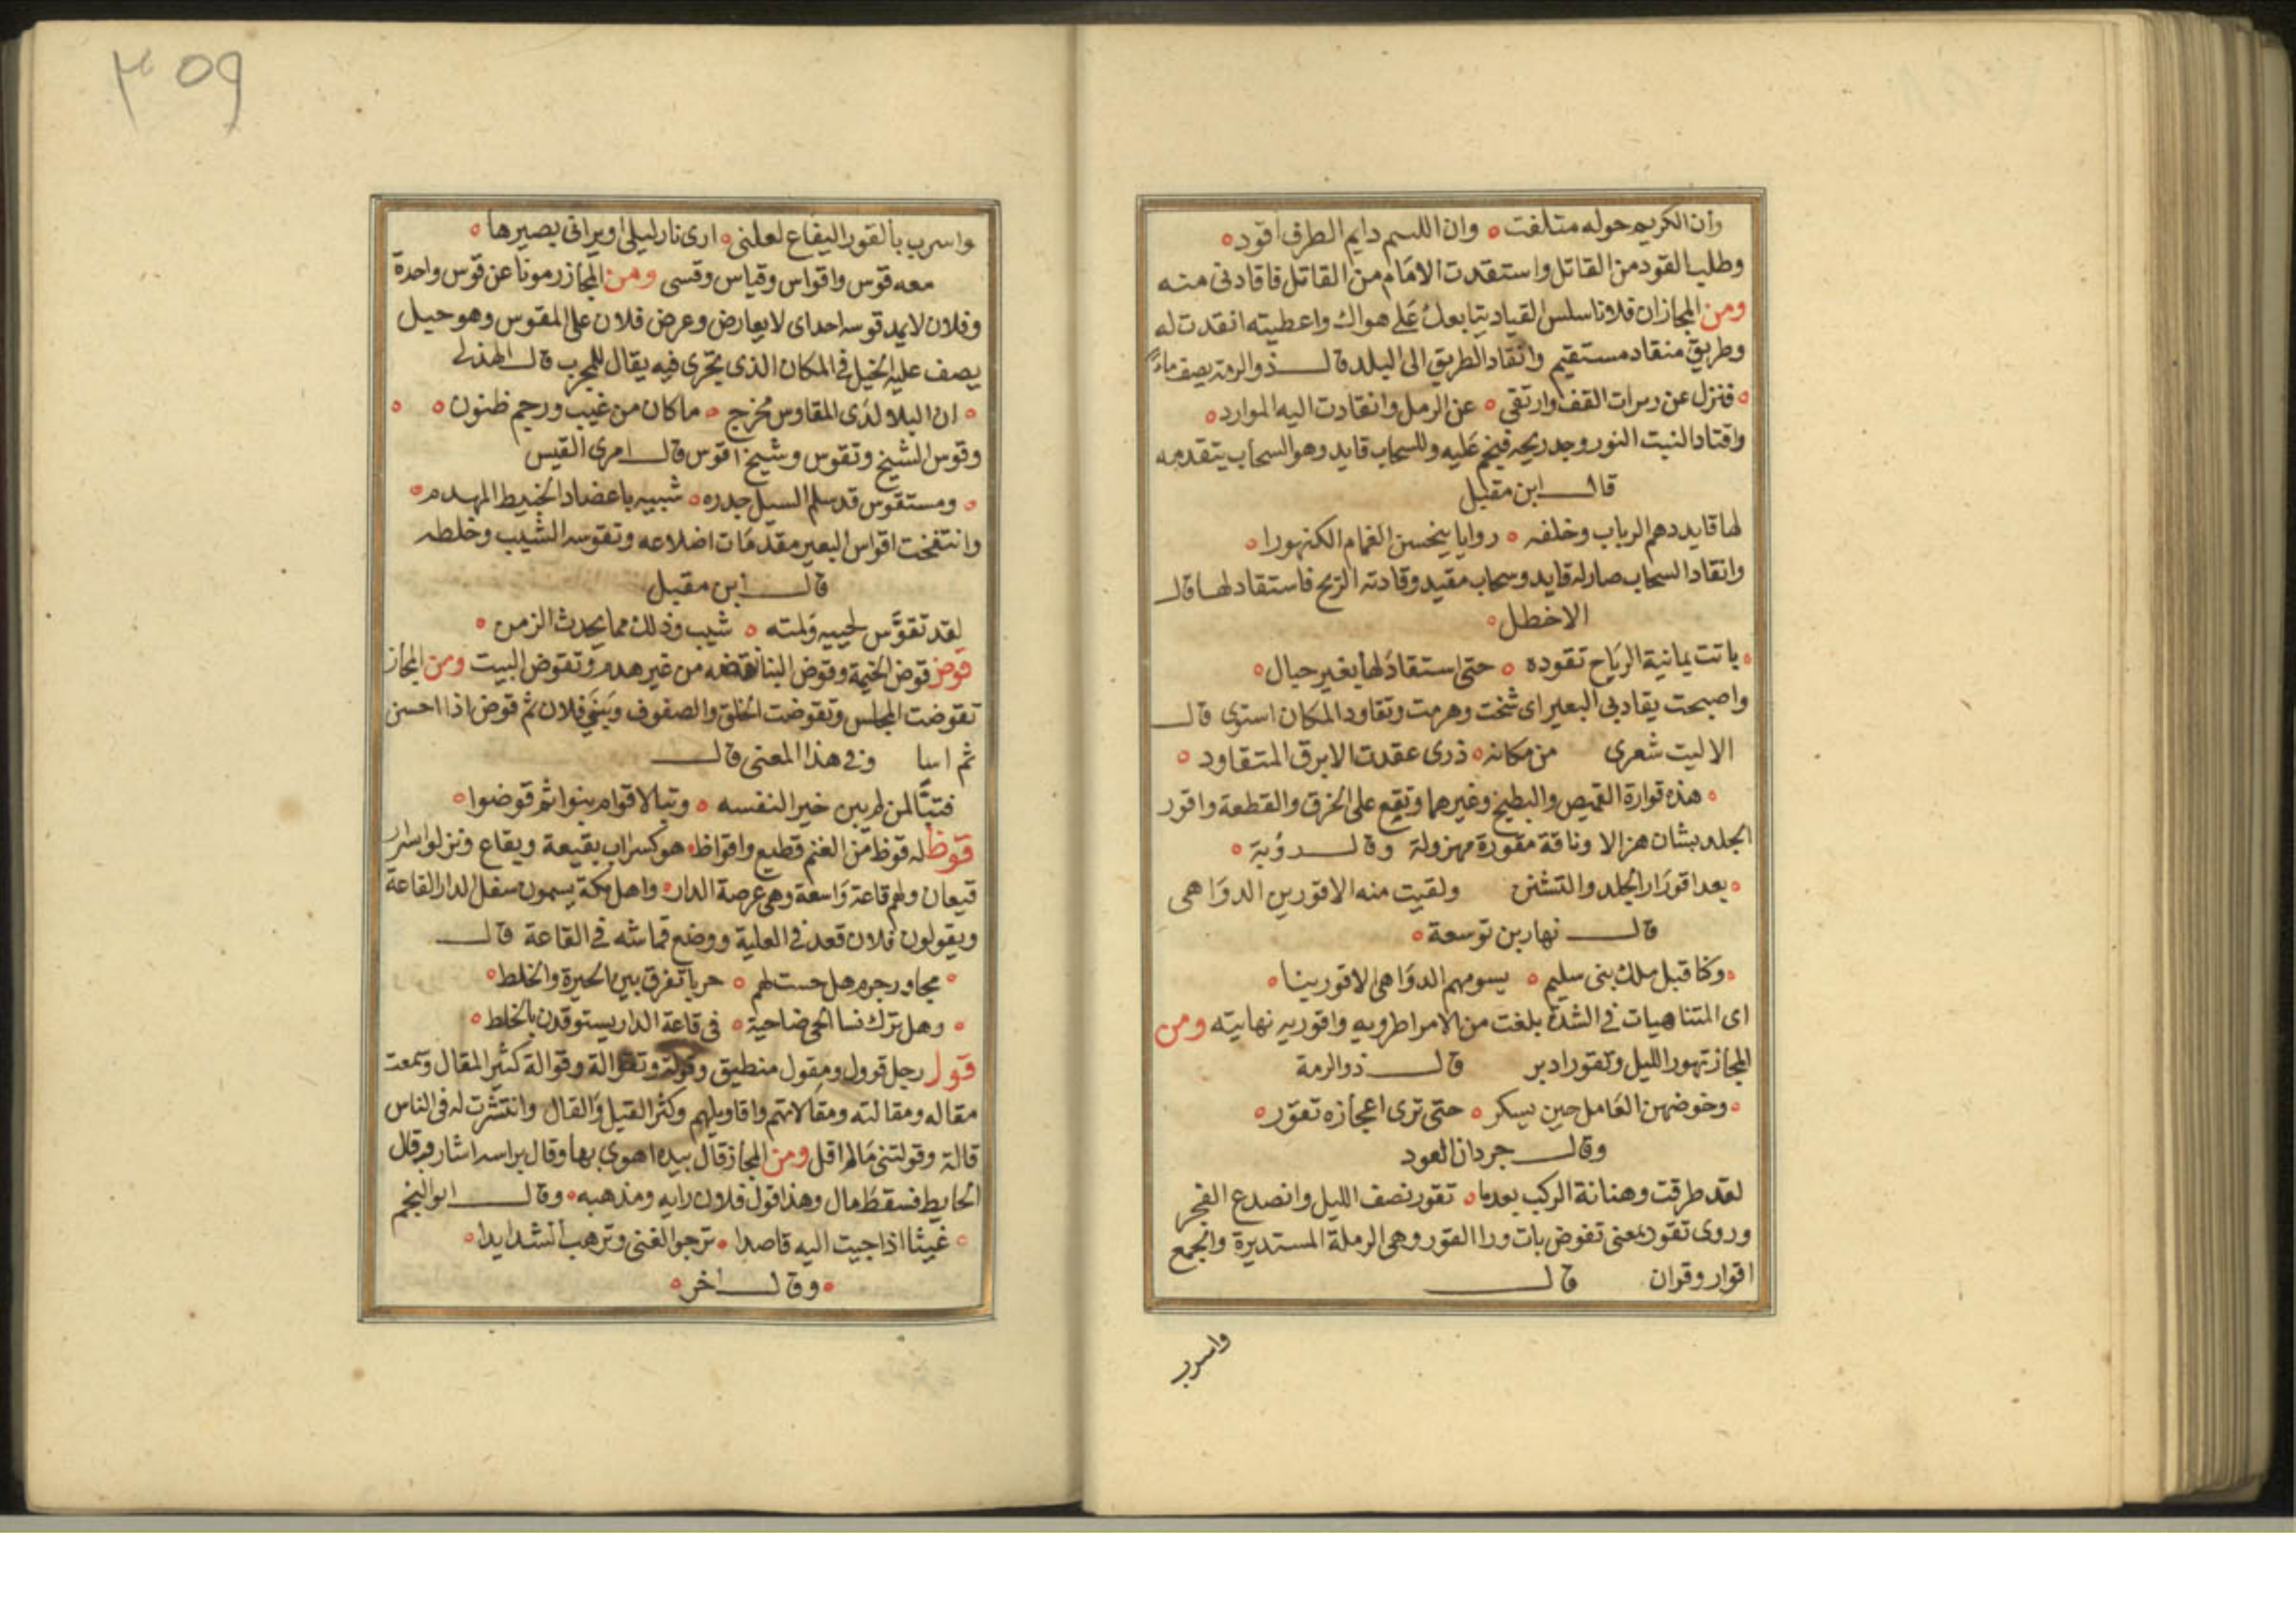 وان الكريم حوله متلفت ٥ وان اللئيم دايم الطرف اقود ٥
وطلب القود من القاتل واستقدت الامام من القاتل فاقادنى منه
ومن المجاز ان فلانا سلس القياد يتابعك على هواك واعطيته انقدت له
وطريق منقاد مستقيم وانقاد الطريق الى البلد قال ذو الرمة يصف ماء
٥ فنزل عن رسرات القف وارتقى ٥ عن الرمل وانقادت اليه الموارد ٥
واقتاد النبت النور وجد ريحه فيخم عليه وللسحاب قايد وهو السحاب يتقدمه
قال ابن مقبل
لها قايد دهم الرباب وخلفه ٥ روايا يبخسن الغمام الكنهورا ٥
وانقاد السحاب صار له قايد وسحاب مقيد وقادته الريح فاستقاد لها قال
الاخطل ٥
٥ باتت يمانية الرياح تقوده ٥ حتى استقاد لها بغير حبال ٥
واصبحت يقاد بى البعير اى شخت وهرمت وتقاود المكان استوى قال
الا ليت شعرى من مكانه ٥ ذرى عقدت الابرق المتقاود ٥
٥ هذه قوارة القميص والبطيخ وغيرهما وتقع على الخرق والقطعة واقور
الجلد بشان هزالا وناقة مقورة مهزولة وقال رؤبة ٥
٥ بعد اقورار الجلد والتشنن ولقيت منه الاقورين الدواهى
قال نهار بن توسعة ٥
٥ وكنا قبل ملك بنى سليم ٥ يسومهم الدواهى لاقورينا ٥
اى المتناهيات فى الشدة بلغت من الامر اطرويه واقوريه نهايته ومن
المجاز تهور الليل وتقور ادبر قال ذو الرمة
٥ وخوضهن العامل حين يسكر ٥ حتى ترى اعجازه تقور ٥
وقال جردان العود
لقد طرقت وهنانة الركب بعدما ٥ تقور نصف الليل وانصدع الفجر
وروى تقود بمعنى تفوض بات ورا القور وهى الرملة المستديرة والجمع
اقوار وقران قال
واسرب
٣٥٩
واسرب بالقور اليفاع لعلنى ٥ ارى نار ليلى او يرانى بصيرها ٥
معه قوس واقواس وقياس وقسى ومن المجاز رمونا عن قوس واحدة
وفلان لا يمد قوسه احد اى لا يعارض وعرض فلان على المقوس وهو حبل
يصف عليه الخيل فى المكان الذى يجرى فيه يقال للمجرب قال الهذلى
٥ ان البلا لدى المقاوس مخرج ٥ ما كان من غيب ورجم ظنون ٥
وقوس الشيخ وتقوس وشيخ اقوس قال امرى القيس
٥ ومستقوس قد سلم السيل جدره ٥ شبيه باعضاد الخبيط المهدم ٥
وانتفخت اقواس البعير مقدمات اضلاعه وتقوسه الشيب وخلطه
قال ابن مقبل
لقد تقوس لحييه ولمته ٥ شيب وذلك مما يحدث الزمن ٥
قوض قوض الخيمة وقوض البنا نقضه من غير هدم وتقوض البيت ومن المجاز
تقوضت المجالس وتقوضت الخلق والصفوف وبنى فلان ثم قوض اذا احسن
ثم اسا وفى هذا المعنى قال
فتبا لمن لم يبن خيرا لنفسه ٥ وتبا لاقوام بنوا ثم قوضوا ٥
قوظ له قوظ من الغنم قطيع واقواظ ٥ هو كسراب بقيعة وبقاع ونزلوا سرار
قيعان ولهم قاعة واسعة وهى عرصة الدار ٥ واهل مكة يسمون سفل الدار القاعة
ويقولون فلان قعد فى العلية ووضع قماشه فى القاعة قال
٥ مجاور جرم هل حست لهم ٥ حربا تفرق بين الحيرة والخلط ٥
٥ وهل ترك نسا الحى ضاحية ٥ فى قاعة الدار يستوقدن بالخلط ٥
قول رجل قوول ومقول منطيق وقولة وتقوالة وقوالة كثير المقال وسمعت
مقاله ومقالته ومقالاتهم واقاويلهم وكثر القيل والقال وانتشرت له فى الناس
قالة وقولتنى ما لم اقل ومن المجاز قال بيده اهوى بها وقال براسه اشار وقال
الحايط فسقط مال وهذا قول فلان رايه ومذهبه ٥ وقال ابو النجم
٥ غيثا اذا جيت اليه قاصدا ٥ ترجو الغنى وترهب الشدايدا ٥
٥ وقال اخر ٥